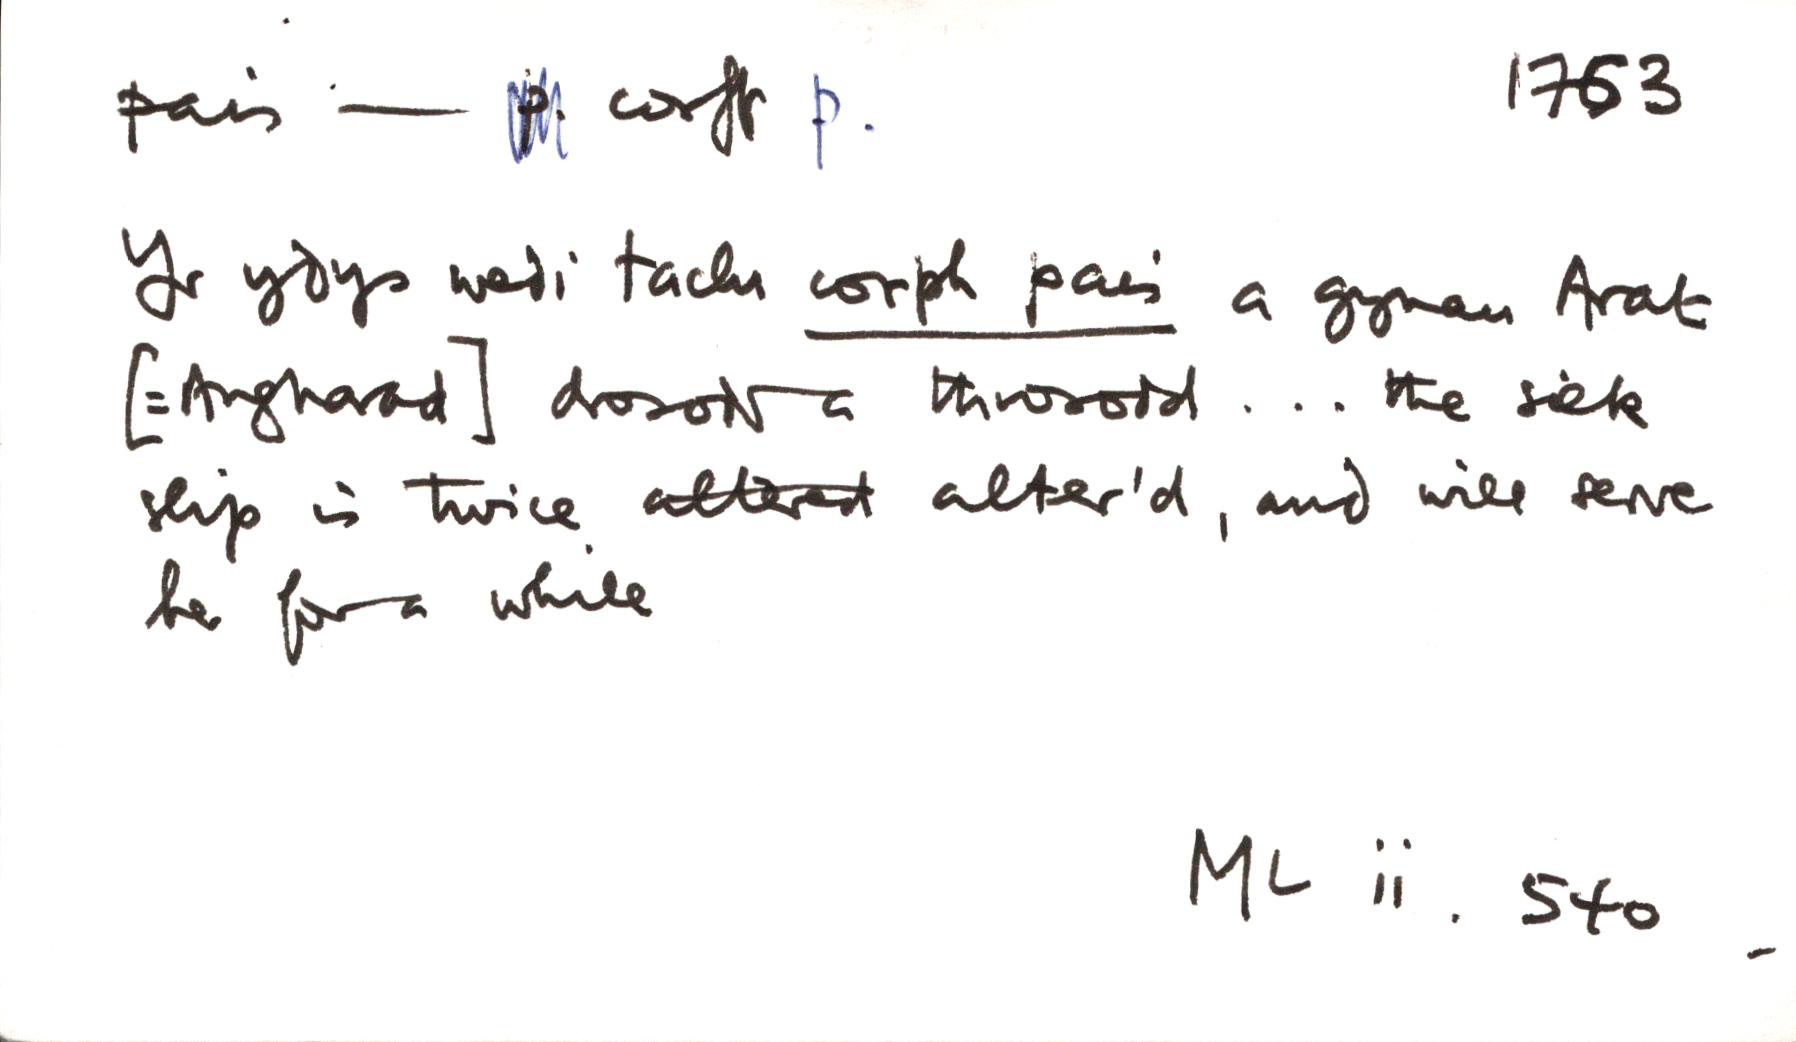 pais — p. corff p. 1763
Yr ydys wedi taclu corph pais a gynau Arat
[=Angharad] drosodd a throsodd . . . the silk
slip is twice altered alter'd, and will serve
her for a while
ML ii. 540